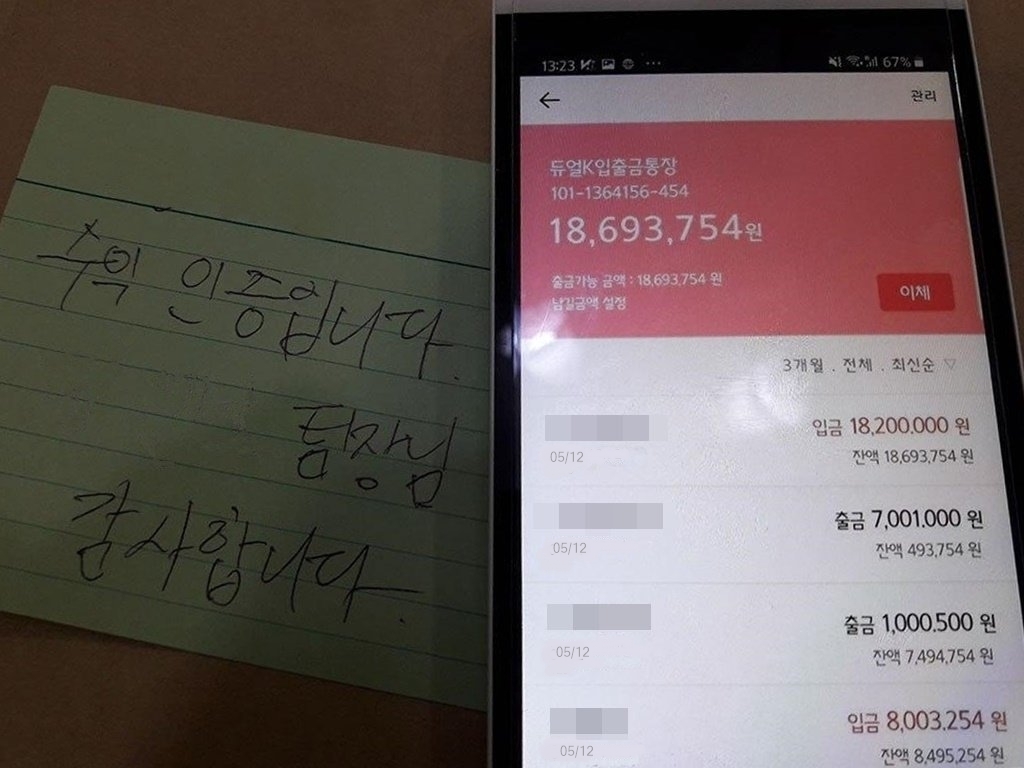 수익 인증입니다.
팀장님
감사합니다.
13:23 67%
관리
듀얼K입출금통장
101-1364156-454
18,693,754원
출금가능 금액 : 18,693,754 원
남길금액 설정
이체
3개월 . 전체 . 최신순
입금 18,200,000 원
05/12 잔액 18,693,754 원
출금 7,001,000 원
05/12 잔액 493,754 원
출금 1,000,500 원
05/12 잔액 7,494,754 원
입금 8,003,254 원
05/12 잔액 8,495,254 원